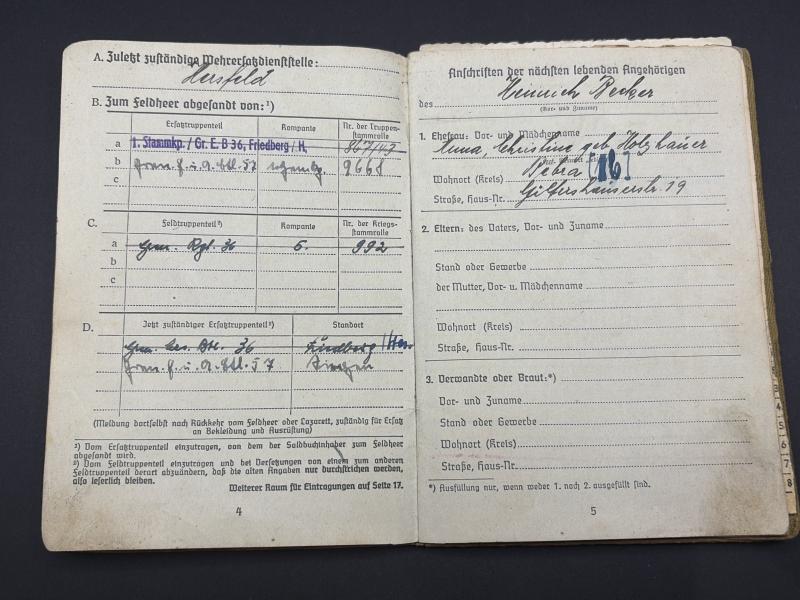 A. Zuletzt zuständige Wehrersatzdienststelle:
Hersfeld
B. Zum Feldheer abgesandt von:¹)
Ersatztruppenteil Kompanie Nr. der Truppenstammrolle
a 1. Stammkp. / Gr. E. B 36, Friedberg / H. 867/43
b 9668
c
C. Feldtruppenteil²) Kompanie Nr. der Kriegsstammrolle
a Gren. Rgt. 36 6. 992
b
c
D. Jetzt zuständiger Ersatztruppenteil²) Standort
Gren. Ers. Btl. 36 Friedberg / Hess.
Siegen
(Meldung dortselbst nach Rückkehr vom Feldheer oder Lazarett, zuständig für Ersatz
an Bekleidung und Ausrüstung)
¹) Vom Ersatztruppenteil einzutragen, von dem der Soldbuchinhaber zum Feldheer
abgesandt wird.
²) Vom Feldtruppenteil einzutragen und bei Versetzungen von einem zum anderen
Feldtruppenteil derart abzuändern, daß die alten Angaben nur durchstrichen werden,
also leserlich bleiben.
Weiterer Raum für Eintragungen auf Seite 17.
4
Anschriften der nächsten lebenden Angehörigen
des Heinrich Becker
(Vor- und Zuname)
1. Ehefrau: Vor- und Mädchenname
Anna, Christine geb. Holzhauer
Wohnort (Kreis) Bebra (16)
Straße, Haus-Nr. Gilfershauserstr. 19
2. Eltern: des Vaters, Vor- und Zuname
Stand oder Gewerbe
der Mutter, Vor- u. Mädchenname
Wohnort (Kreis)
Straße, Haus-Nr.
3. Verwandte oder Braut:*)
Vor- und Zuname
Stand oder Gewerbe
Wohnort (Kreis)
Straße, Haus-Nr.
*) Ausfüllung nur, wenn weder 1. noch 2. ausgefüllt sind.
5
4
5
6
7
8